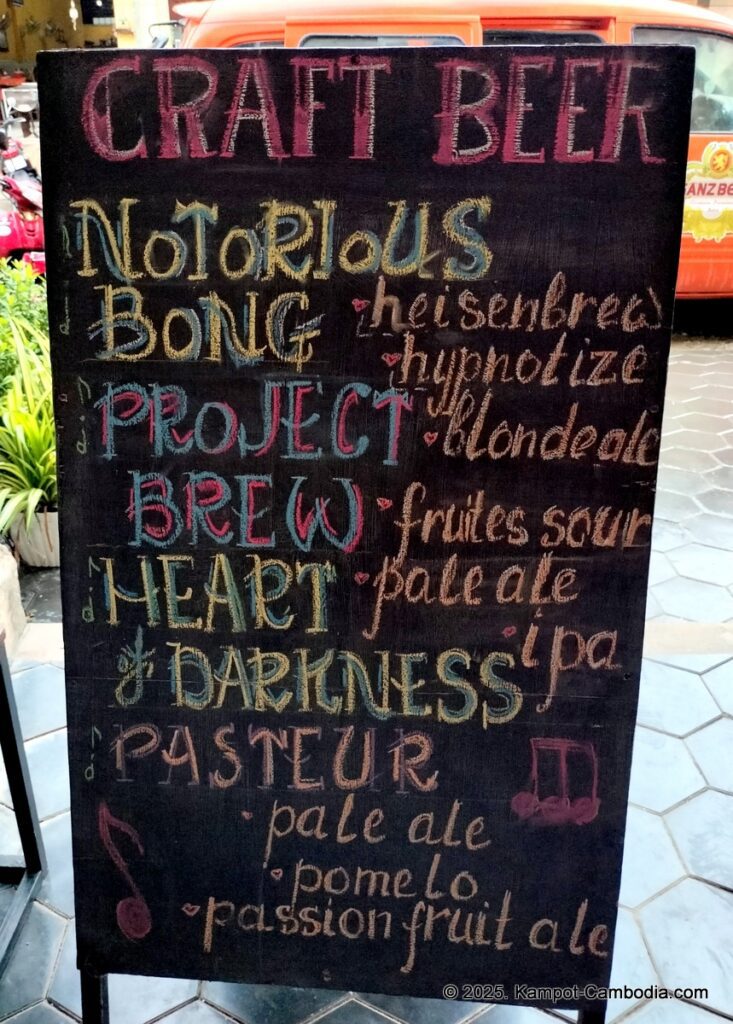 CRAFT BEER
NOTORIOUS
BONG
heisenbrew
hypnotize
PROJECT
blonde ale
BREW
fruites sour
HEART
pale ale
of DARKNESS
ipa
PASTEUR
pale ale
pomelo
passion fruit ale
GANZBE
© 2025. Kampot-Cambodia.com